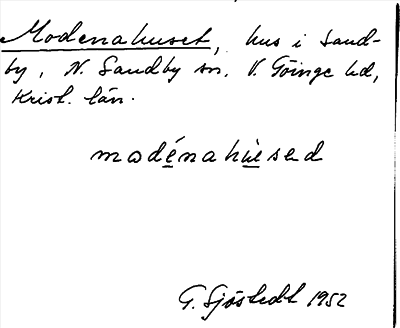 Modenahuset, hus i Sand-
by, N. Sandby sn. V. Göinge hd,
Krist. län.
modénahùsed
G. Sjöstedt 1952